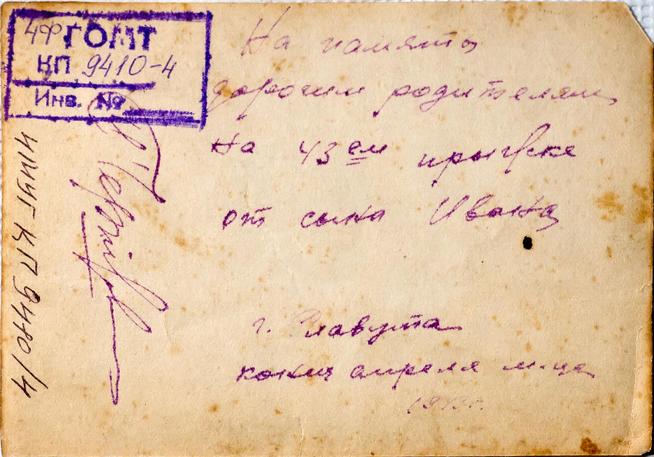 ЧФ ГОМТ
КП 9410-4
Инв. №
На память
дорогим родителям
На 43ем прыжке
от сына Ивана
г. Славута
конец апреля м-ца
ЧМУГ КП 9410/4